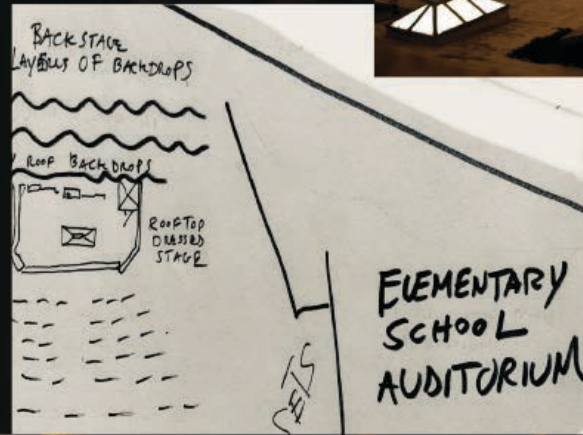 BACKSTAGE
LAYERS OF BACKDROPS
ROOF BACKDROPS
ROOFTOP
DRESSED
STAGE
SETS
ELEMENTARY
SCHOOL
AUDITORIUM